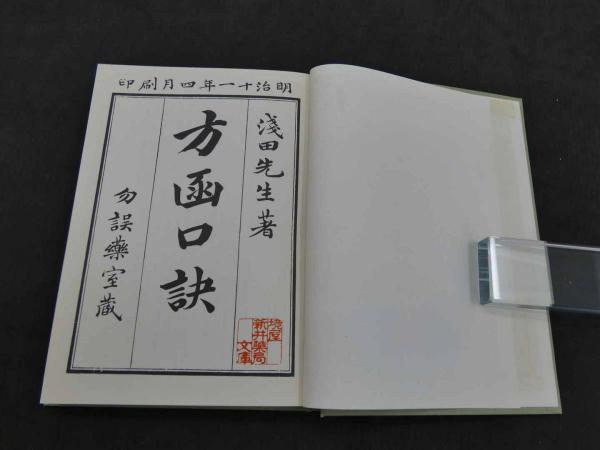 明治十一年四月刷印
淺田先生著
方函口訣
勿誤藥室藏
新井藥局
文庫